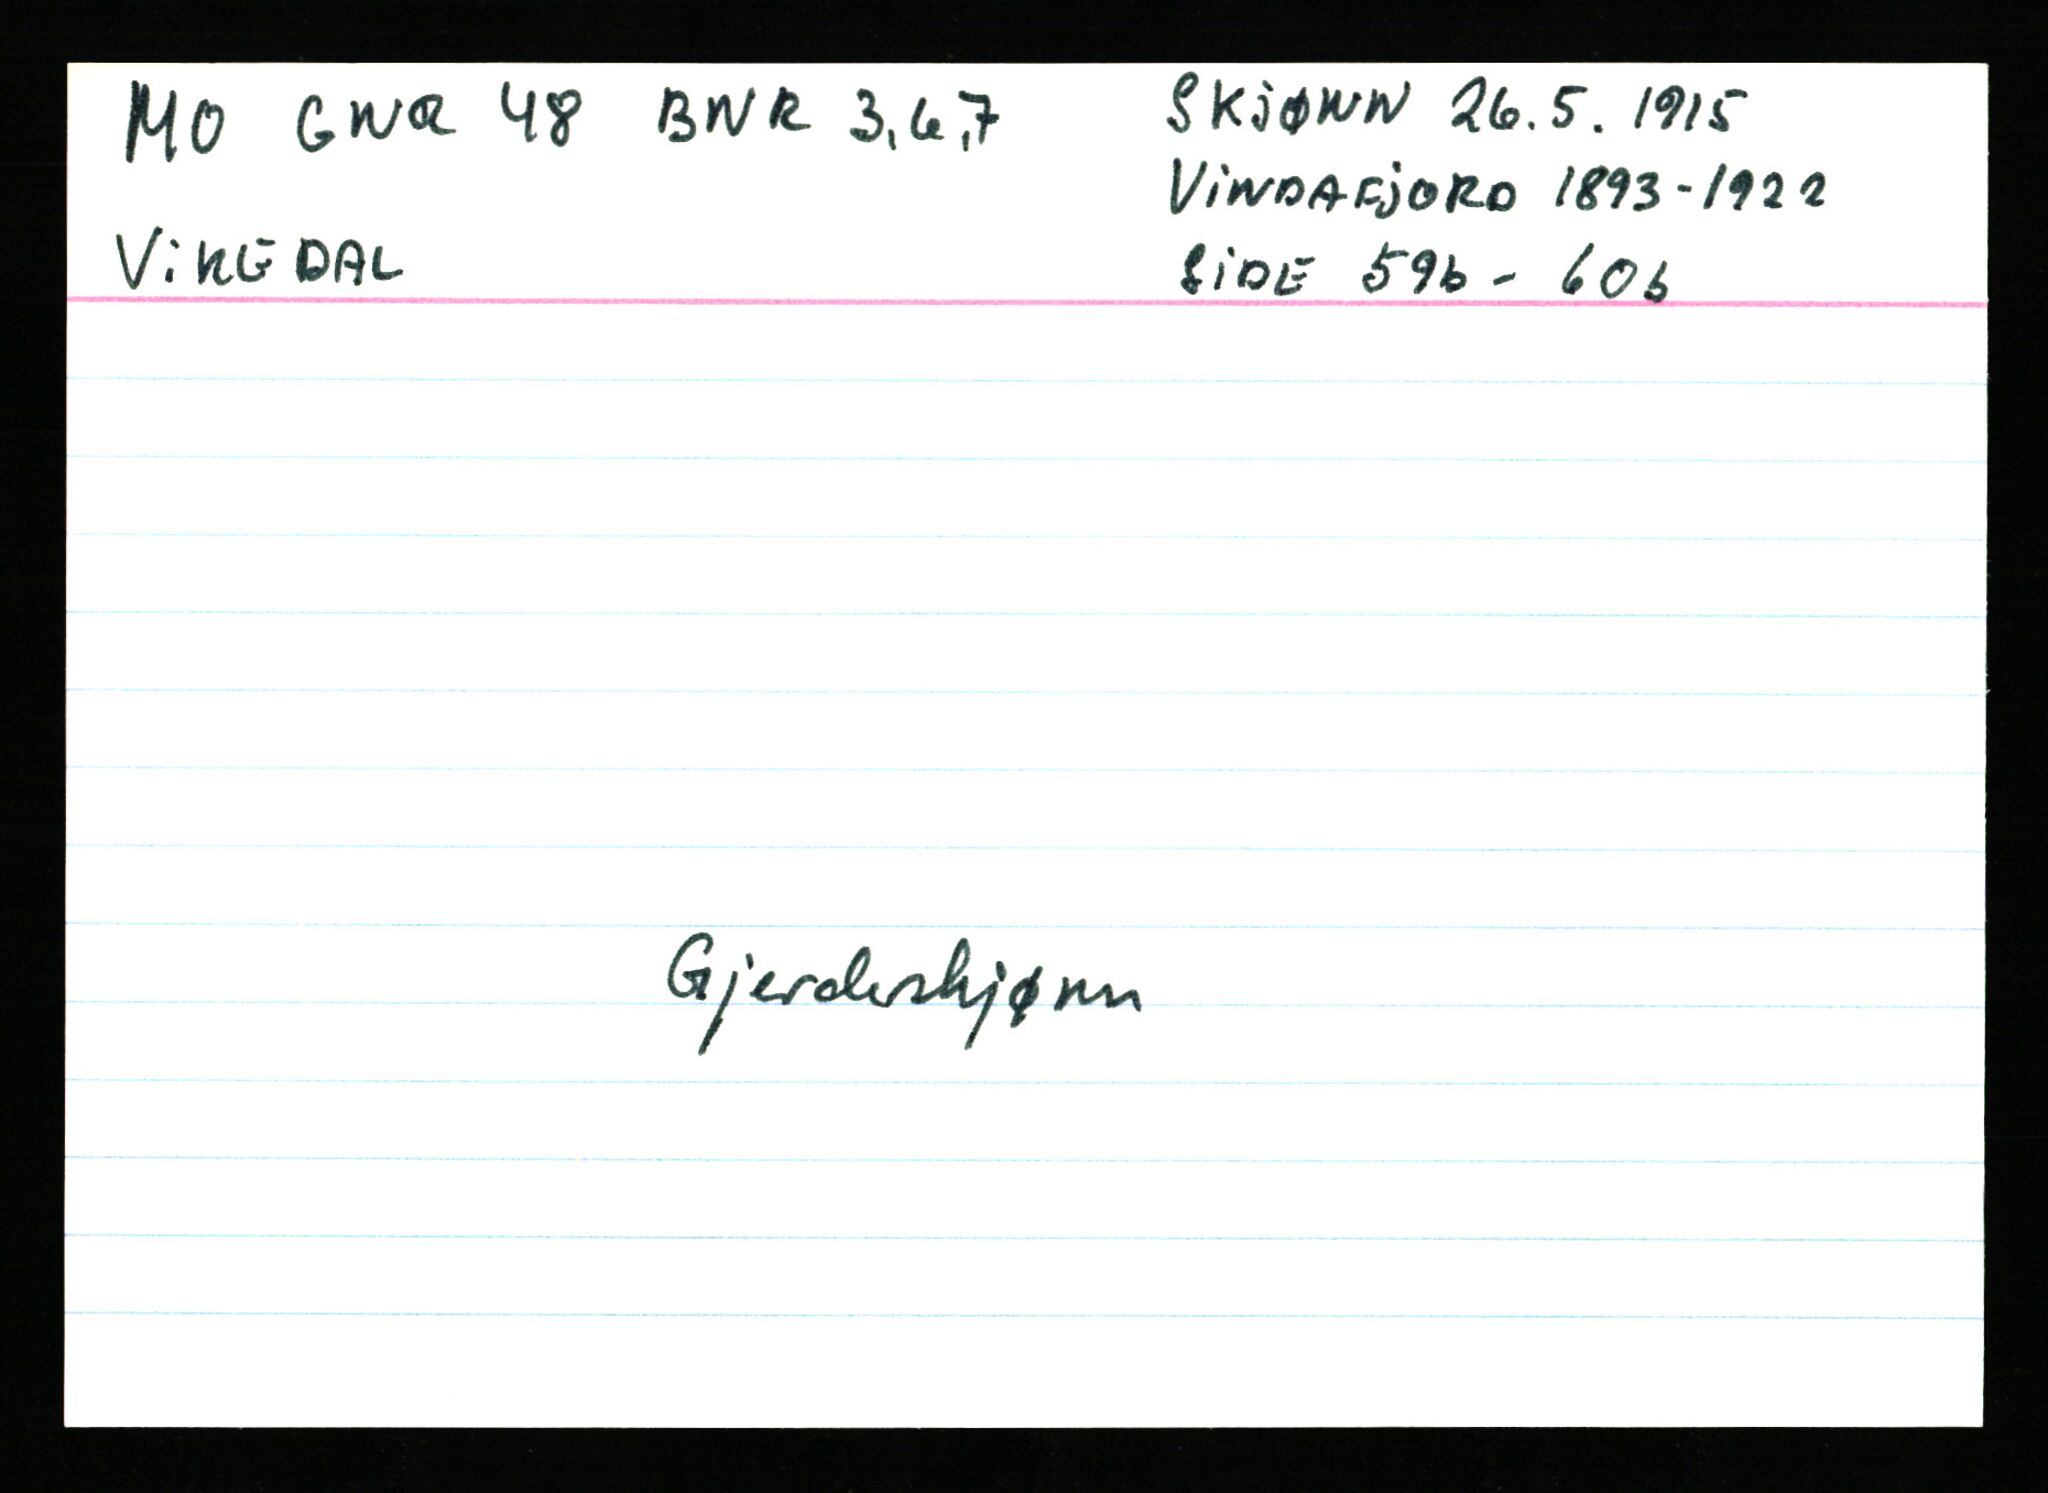 MO GNR 48 BNR 3,6,7
SKJØNN 26.5.1915
VINDAFJORD 1893-1922
VIKEDAL
SIDE 59b - 60b
Gjerdeskjønn